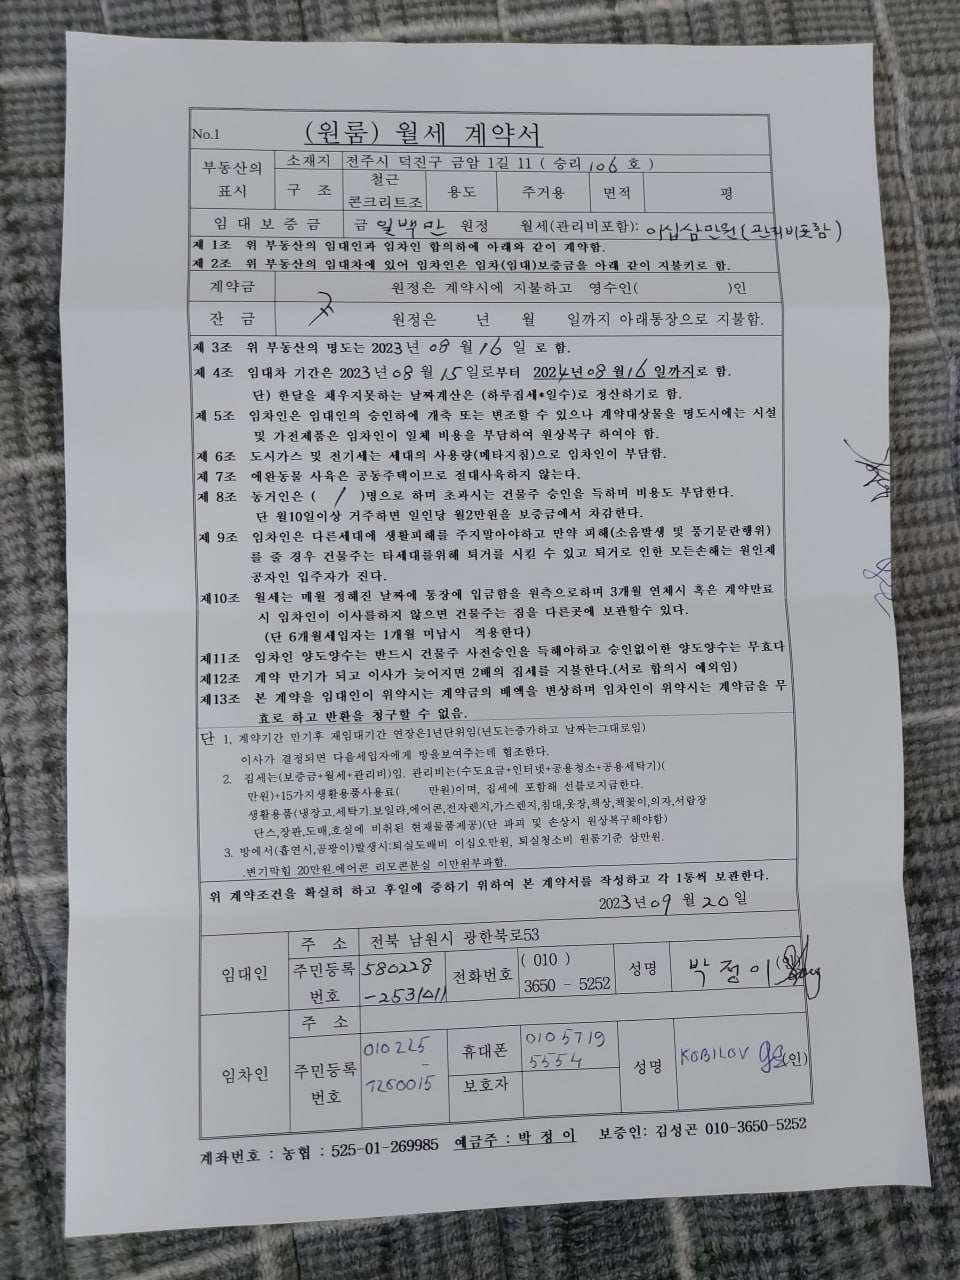 No.1 (원룸) 월세 계약서
부동산의 표시 소재지 전주시 덕진구 금암 1길 11 ( 승리 106 호 )
구 조 철근 콘크리트조 용도 주거용 면적 평
임 대 보 증 금 금 일백만 원정 월세(관리비포함): 이십삼만원(관리비포함)
제 1조 위 부동산의 임대인과 임차인 합의하에 아래와 같이 계약함.
제 2조 위 부동산의 임대차에 있어 임차인은 임차(임대)보증금을 아래 같이 지불키로 함.
계약금 원정은 계약시에 지불하고 영수인( )인
잔 금 원정은 년 월 일까지 아래통장으로 지불함.
제 3조 위 부동산의 명도는 2023년 08 월 16 일 로 함.
제 4조 임대차 기간은 2023년 08 월 15 일로부터 2024년 08 월 16 일까지로 함.
단) 한달을 채우지못하는 날짜계산은 (하루집세*일수)로 정산하기로 함.
제 5조 임차인은 임대인의 승인하에 개축 또는 변조할 수 있으나 계약대상물을 명도시에는 시설
및 가전제품은 임차인이 일체 비용을 부담하여 원상복구 하여야 함.
제 6조 도시가스 및 전기세는 세대의 사용량(메타지침)으로 임차인이 부담함.
제 7조 애완동물 사육은 공동주택이므로 절대사육하지 않는다.
제 8조 동거인은 ( 1 )명으로 하며 초과시는 건물주 승인을 득하며 비용도 부담한다.
단 월10일이상 거주하면 일인당 월2만원을 보증금에서 차감한다.
제 9조 임차인은 다른세대에 생활피해를 주지말아야하고 만약 피해(소음발생 및 풍기문란행위)
를 줄 경우 건물주는 타세대를위해 퇴거를 시킬 수 있고 퇴거로 인한 모든손해는 원인제
공자인 입주자가 진다.
제10조 월세는 매월 정해진 날짜에 통장에 입금함을 원측으로하며 3개월 연체시 혹은 계약만료
시 임차인이 이사를하지 않으면 건물주는 짐을 다른곳에 보관할수 있다.
(단 6개월세입자는 1개월 미납시 적용한다)
제11조 임차인 양도양수는 반드시 건물주 사전승인을 득해야하고 승인없이한 양도양수는 무효다
제12조 계약 만기가 되고 이사가 늦어지면 2배의 집세를 지불한다.(서로 합의시 예외임)
제13조 본 계약을 임대인이 위약시는 계약금의 배액을 변상하며 임차인이 위약시는 계약금을 무
효로 하고 반환을 청구할 수 없음.
단 1, 계약기간 만기후 재임대기간 연장은1년단위임(년도는증가하고 날짜는그대로임)
이사가 결정되면 다음세입자에게 방을보여주는데 협조한다.
2. 집세는(보증금+월세+관리비)임. 관리비는(수도요금+인터넷+공용청소+공용세탁기)(
만원)+15가지생활용품사용료( 만원)이며, 집세에 포함해 선블로지급한다.
생활용품(냉장고.세탁기.보일라,에어콘,전자렌지,가스렌지,침대,옷장,책상,책꽂이,의자,서랍장
단스,장판,도배,호실에 비취된 현재물품제공)(단 파괴 및 손상시 원상복구해야함)
3. 방에서(흡연시,곰팡이)발생시:퇴실도배비 이십오만원, 퇴실청소비 원룸기준 삼만원.
.변기막힘 20만원.에어콘 리모콘분실 이만원부과함.
위 계약조건을 확실히 하고 후일에 증하기 위하여 본 계약서를 작성하고 각 1통씩 보관한다.
2023년 09 월 20 일
임대인 주 소 전북 남원시 광한북로53
주민등록 번호 580228 -2531011 전화번호 ( 010 ) 3650 - 5252 성명 박 정 이 (인)
임차인 주 소
주민등록 번호 010225 - 7260015 휴대폰 010 5719 5554 성명 KOBILOV (인)
보호자
계좌번호 : 농협 : 525-01-269985 예금주 : 박 정 이 보증인: 김성곤 010-3650-5252